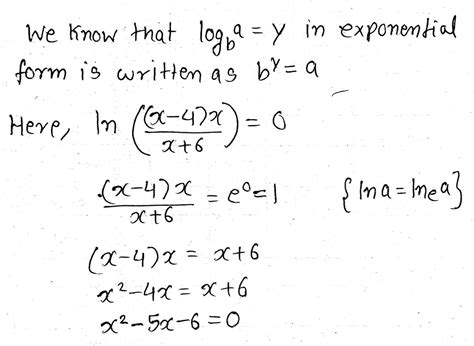 We know that log_b a = y in exponential
form is written as b^y = a
Here, ln (((x-4)x)/(x+6)) = 0
((x-4)x)/(x+6) = e^0 = 1 {ln a = ln_e a}
(x-4)x = x+6
x^2-4x = x+6
x^2-5x-6=0